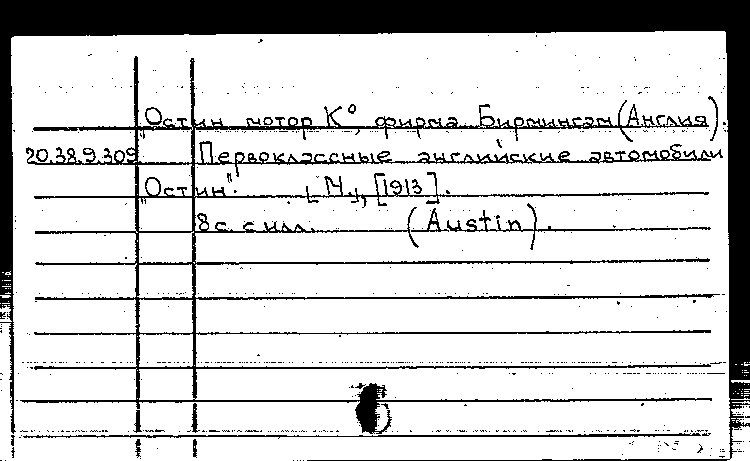 "Остин мотор К°, фирма. Бирмингам (Англия).
20.38.9.309 Первоклассные английские автомобили
"Остин". [М., [1913].
8 с. с илл. (Austin).